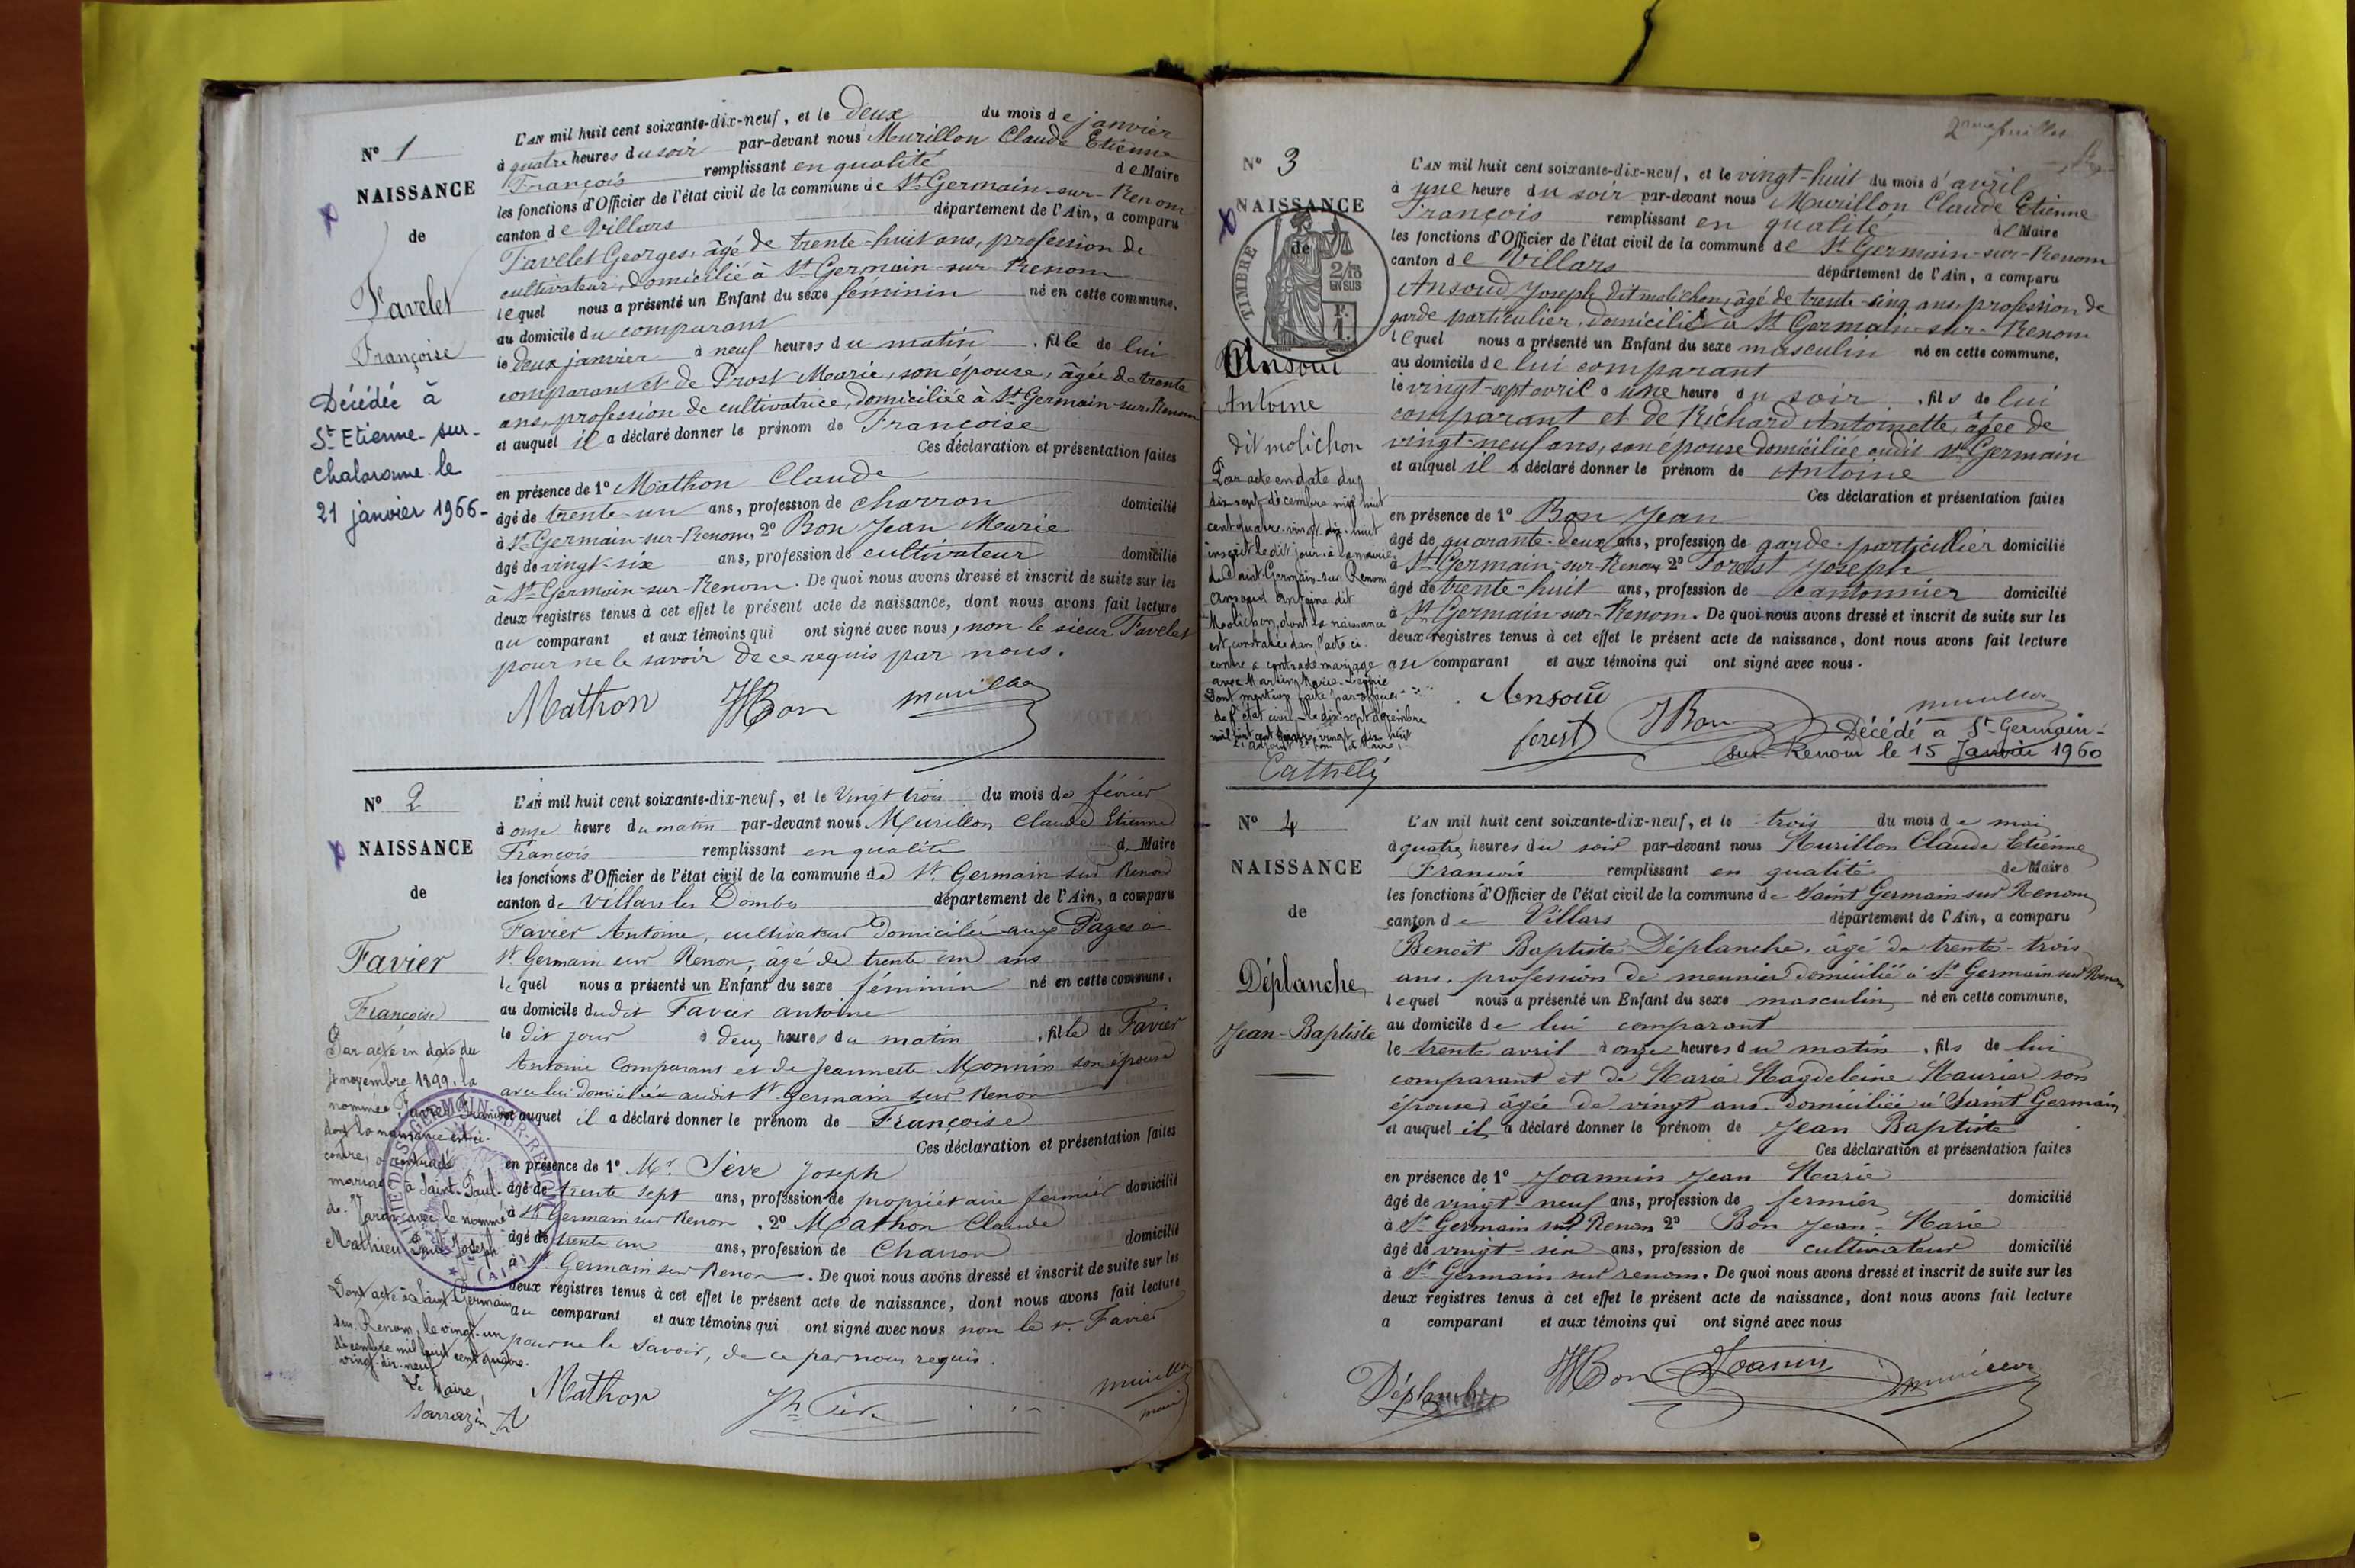 N° 1
NAISSANCE
de
Favelet
Françoise
Décédée à
St Etienne-sur-
Chalaronne le
21 janvier 1966-
L'AN mil huit cent soixante-dix-neuf, et le deux du mois de janvier
à quatre heures du soir par-devant nous Murillon Claude Etienne
François remplissant en qualité de Maire
les fonctions d'Officier de l'état civil de la commune de St Germain-sur-Renom
canton de Villars département de l'Ain, a comparu
Favelet Georges, âgé de trente-huit ans, profession de
cultivateur, domicilié à St Germain-sur-Renom
lequel nous a présenté un Enfant du sexe féminin né en cette commune,
au domicile du comparant
le deux janvier à neuf heures du matin, fille de lui
comparant et de Prost Marie, son épouse, âgée de trente
ans, profession de cultivatrice, domiciliée à St Germain-sur-Renom
et auquel il a déclaré donner le prénom de Françoise
Ces déclaration et présentation faites
en présence de 1° Mathon Claude
âgé de trente-un ans, profession de charron domicilié
à St Germain-sur-Renom, 2° Bon Jean Marie
âgé de vingt-six ans, profession de cultivateur domicilié
à St Germain-sur-Renom. De quoi nous avons dressé et inscrit de suite sur les
deux registres tenus à cet effet le présent acte de naissance, dont nous avons fait lecture
au comparant et aux témoins qui ont signé avec nous, non le sieur Favelet
pour ne le savoir de ce requis par nous.
Mathon JMBon murillon
N° 2
NAISSANCE
de
Favier
Françoise
Par acte en date du
novembre 1899, la
nommée Favier Françoise
dont la naissance est ci-
contre, a contracté
mariage à Saint-Paul-
de-Varax avec le nommé
Mathieu Joseph
Dont acte à Saint Germain
sur Renom, le vingt-un
décembre mil huit cent quatre-
vingt-dix-neuf
Le Maire,
Sarrazin
L'AN mil huit cent soixante-dix-neuf, et le Vingt trois du mois de février
à onze heure du matin par-devant nous Murillon Claude Etienne
François remplissant en qualité de Maire
les fonctions d'Officier de l'état civil de la commune de St Germain sur Renon
canton de Villars les Dombes département de l'Ain, a comparu
Favier Antoine, cultivateur domicilié aux Pages à
St Germain sur Renon, âgé de trente un ans
lequel nous a présenté un Enfant du sexe féminin né en cette commune,
au domicile dudit Favier antoine
le dit jour à deux heures du matin, fille de Favier
Antoine Comparant et de Jeannette Monnin son épouse
avec lui domiciliée audit St Germain sur Renon
et auquel il a déclaré donner le prénom de Françoise
Ces déclaration et présentation faites
en présence de 1° Mr Sève Joseph
âgé de trente sept ans, profession de propriétaire fermier domicilié
à St Germain sur Renon, 2° Mathon Claude
âgé de trente un ans, profession de Charron domicilié
à St Germain sur Renon. De quoi nous avons dressé et inscrit de suite sur les
deux registres tenus à cet effet le présent acte de naissance, dont nous avons fait lecture
au comparant et aux témoins qui ont signé avec nous non le sr Favier
pour ne le savoir, de ce par nous requis.
Mathon Jh Sève murillon
maire
2me feuillet
N° 3
NAISSANCE
de
TIMBRE
2/10
EN SUS
F.
1.
Ansoud
Antoine
dit molichon
Par acte en date du
dix sept décembre mil huit
cent quatre-vingt dix-huit
inscrit le dit jour à la mairie
de Saint-Germain-sur-Renom
Ansoud Antoine dit
Molichon, dont la naissance
est constatée dans l'acte ci-
contre a contracté mariage
avec Martin Marie-
Dont mention faite par officier
de l'état civil le dix sept décembre
mil huit cent quatre vingt dix huit
Cathely
L'AN mil huit cent soixante-dix-neuf, et le vingt-huit du mois d'avril
à une heure du soir par-devant nous Murillon Claude Etienne
François remplissant en qualité de Maire
les fonctions d'Officier de l'état civil de la commune de St Germain-sur-Renom
canton de Villars département de l'Ain, a comparu
Ansoud Joseph dit molichon, âgé de trente-cinq ans, profession de
garde particulier, domicilié à St Germain-sur-Renom
lequel nous a présenté un Enfant du sexe masculin né en cette commune,
au domicile de lui comparant
le vingt-sept avril à une heure du soir, fils de lui
comparant et de Richard Antoinette âgée de
vingt-neuf ans, son épouse domiciliée audit St Germain
et auquel il a déclaré donner le prénom de Antoine
Ces déclaration et présentation faites
en présence de 1° Bon Jean
âgé de quarante-deux ans, profession de garde-particulier domicilié
à St Germain-sur-Renom 2° Forest Joseph
âgé de trente-huit ans, profession de cantonnier domicilié
à St Germain-sur-Renom. De quoi nous avons dressé et inscrit de suite sur les
deux registres tenus à cet effet le présent acte de naissance, dont nous avons fait lecture
au comparant et aux témoins qui ont signé avec nous.
Ansoud
forest JBon murillon
Décédé à St Germain-
sur-Renom le 15 Janvier 1960
N° 4
NAISSANCE
de
Déplanche
Jean-Baptiste
L'AN mil huit cent soixante-dix-neuf, et le trois du mois de mai
à quatre heures du soir par-devant nous Murillon Claude Etienne
François remplissant en qualité de Maire
les fonctions d'Officier de l'état civil de la commune de Saint Germain sur Renom
canton de Villars département de l'Ain, a comparu
Benoît Baptiste Déplanche, âgé de trente-trois
ans, profession de meunier domicilié à St Germain sur Renom
lequel nous a présenté un Enfant du sexe masculin né en cette commune,
au domicile de lui comparant
le trente avril à onze heures du matin, fils de lui
comparant et de Marie Magdeleine Maurier son
épouse, âgée de vingt ans. domiciliée à Saint Germain
et auquel il a déclaré donner le prénom de Jean Baptiste
Ces déclaration et présentation faites
en présence de 1° Joannin Jean Marie
âgé de vingt-neuf ans, profession de fermier domicilié
à St Germain sur Renom 2° Bon Jean-Marie
âgé de vingt-six ans, profession de cultivateur domicilié
à St Germain sur renom. De quoi nous avons dressé et inscrit de suite sur les
deux registres tenus à cet effet le présent acte de naissance, dont nous avons fait lecture
a comparant et aux témoins qui ont signé avec nous
Déplanche JMBon Joanin murillon